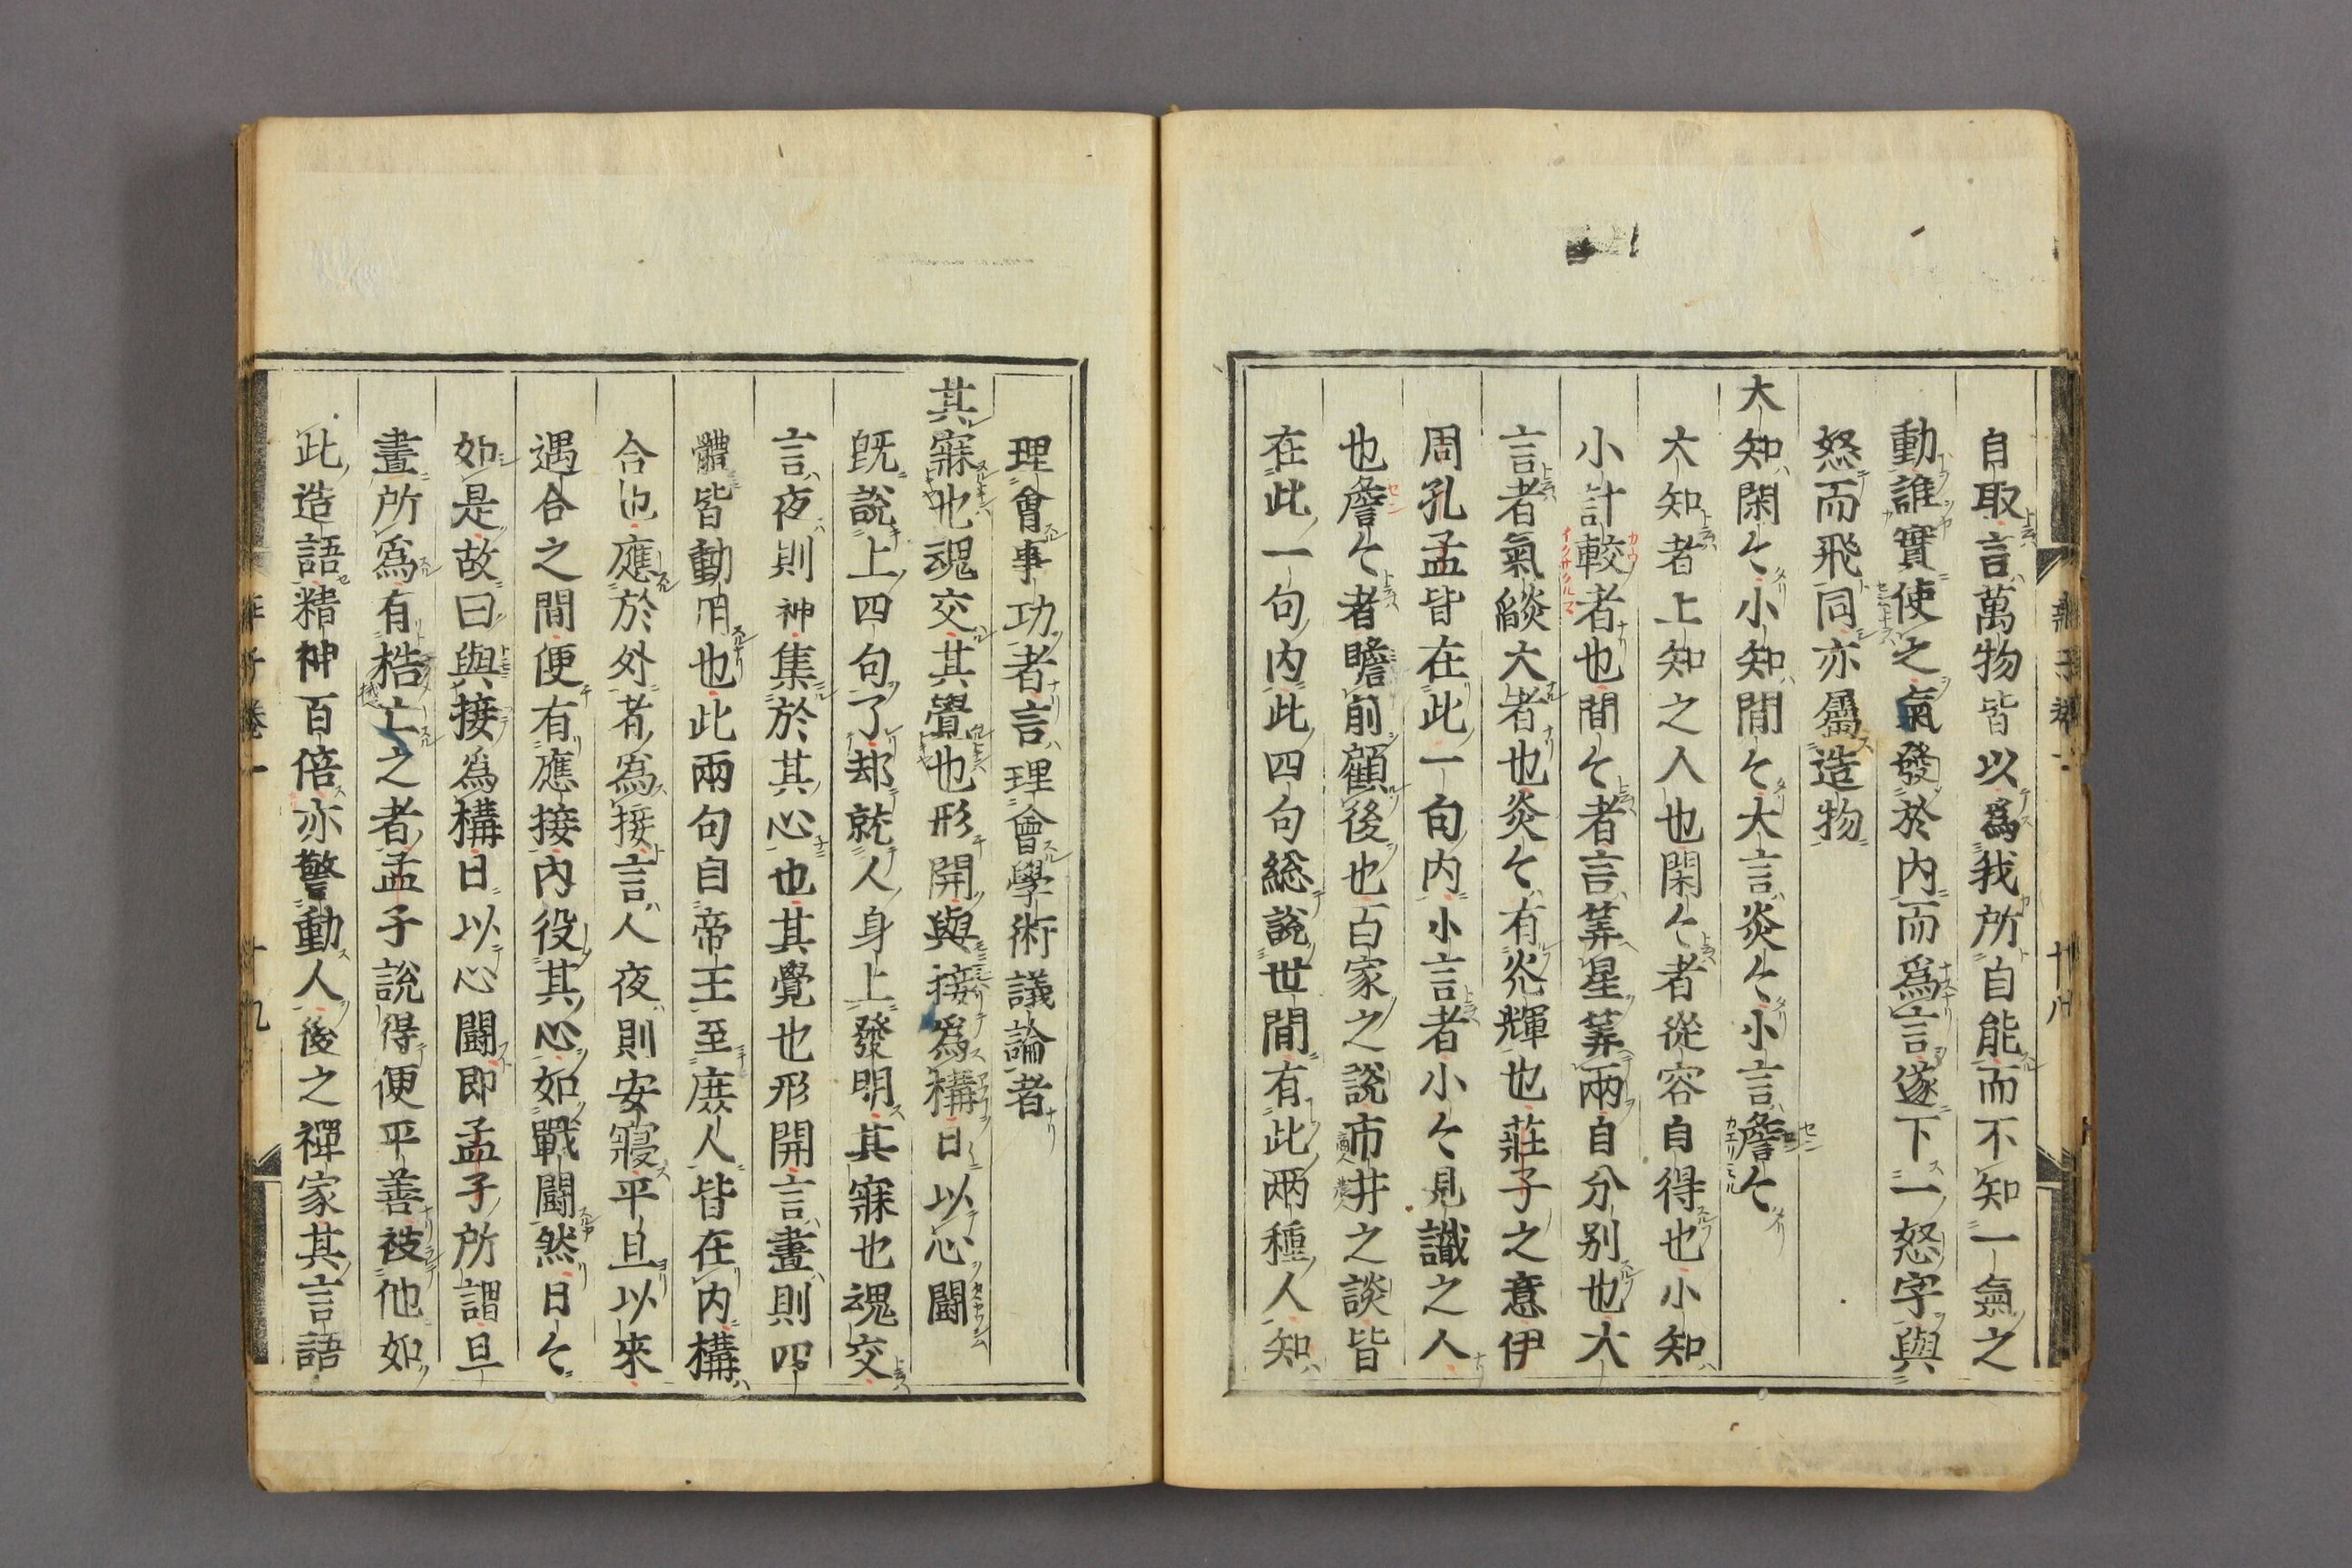 自取言萬物皆以爲我所自能而不知一氣之
動誰實使之氣發於内而爲言遂下一怒字與
怒而飛同亦屬造物
大知閑々小知間々大言炎々小言詹々
大知者上知之人也閑々者從容自得也小知
小計較者也間々者言筭星筭兩自分别也大
言者氣燄大者也炎々有光輝也莊子之意伊
周孔孟皆在此一句内小言者小々見識之人
也詹々者瞻前顧後也百家之說市井之談皆
在此一句内此四句総說世間有此兩種人知
理會事功者言理會學術議論者
其寐也魂交其覺也形開與接爲構日以心闘
旣說上四句了却就人身上發明其寐也魂交
言夜則神集於其心也其覺也形開言晝則四
體皆動用也此兩句自帝王至庶人皆在内構
合也應於外者爲接言人夜則安寢平旦以來
遇合之間便有應接内役其心如戰闘然日々
如是故曰與接爲構日以心闘即孟子所謂旦
晝所爲有梏亡之者孟子說得便平善被他如
此造語精神百倍亦警動人後之禪家其言語